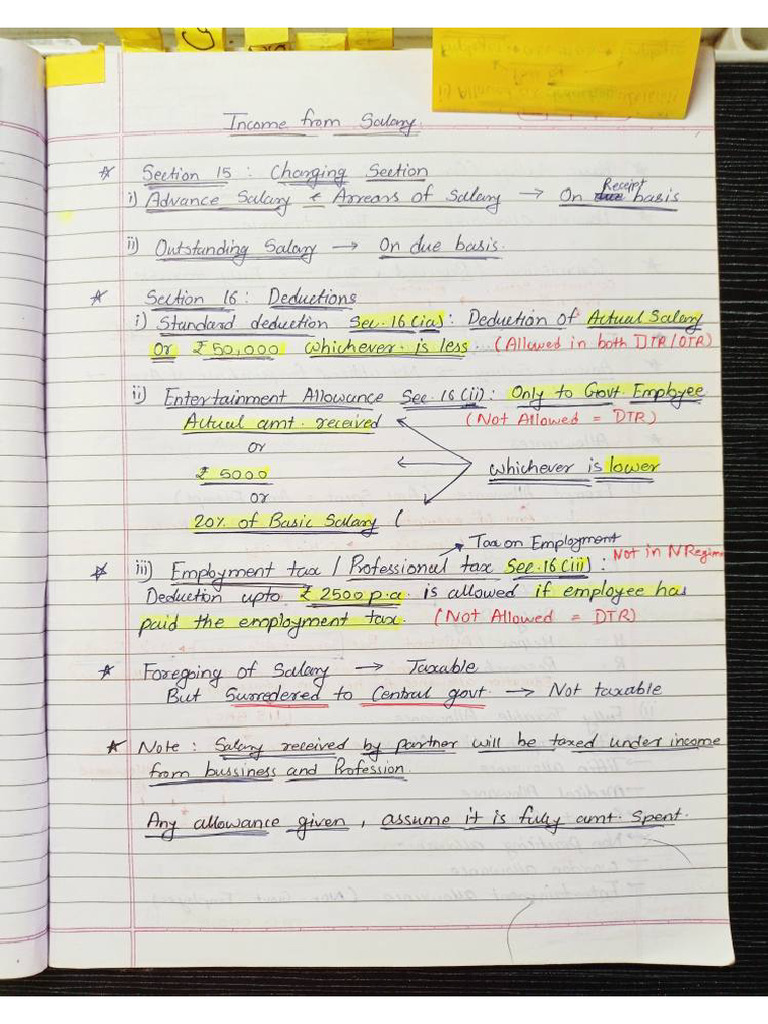 Income from Salary
☆ Section 15 : Charging Section
i) Advance Salary & Arrears of Salary → On Receipt basis
ii) Outstanding Salary → On due basis.
☆ Section 16 : Deductions
i) Standard deduction Sec. 16 (ia) : Deduction of Actual Salary
Or ₹ 50,000 whichever is less. (Allowed in both DTR/OTR)
ii) Entertainment Allowance Sec. 16 (ii) : Only to Govt. Employee
Actual amt. received (Not Allowed = DTR)
or
₹ 5000 whichever is lower
or
20% of Basic Salary (
→ Tax on Employment
☆ iii) Employment tax / Professional tax Sec. 16 (iii) : Not in N Regime
Deduction upto ₹ 2500 p.a. is allowed if employee has
paid the employment tax. (Not Allowed = DTR)
☆ Foregoing of Salary → Taxable
But Surredered to Central govt. → Not taxable
☆ Note : Salary received by partner will be taxed under income
from bussiness and Profession.
Any allowance given, assume it is fully amt. spent.